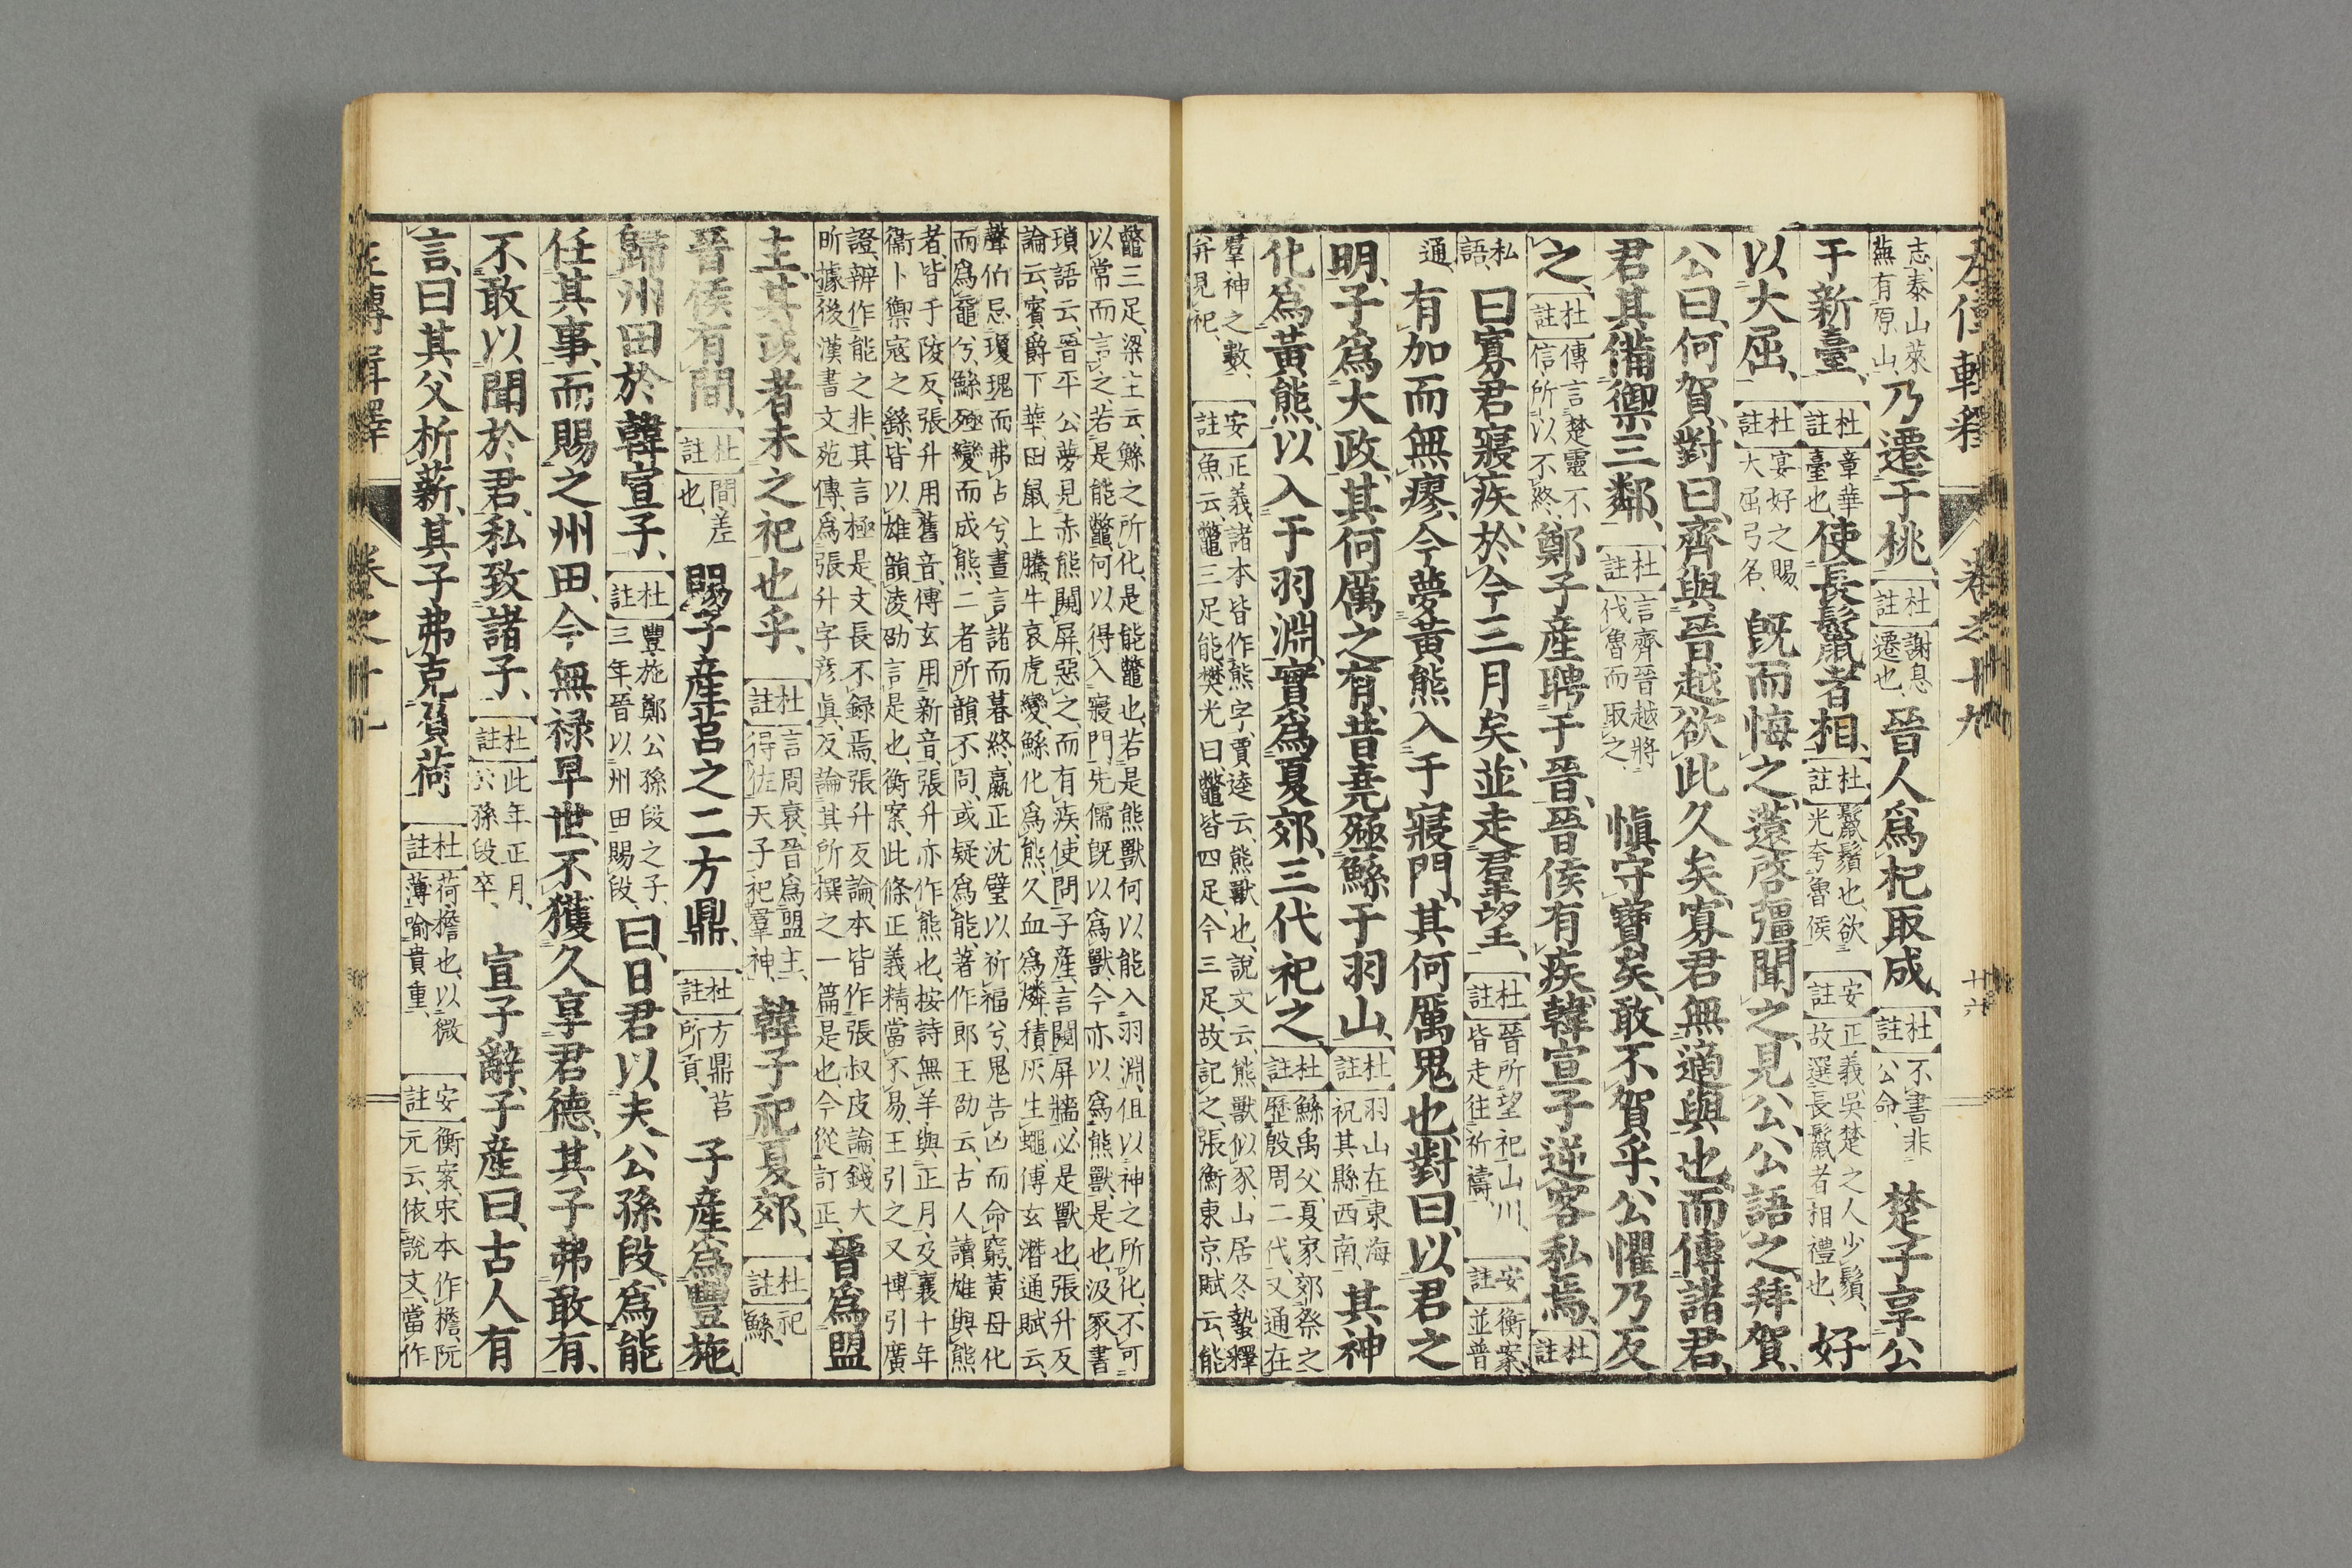 左傳輯釋 卷之十九 十六
志泰山萊蕪有原山乃遷于桃杜註謝息遷也晉人爲杞取成杜註不書非公命楚子享公
于新臺杜註章華臺也使長鬣者相杜註鬣鬚也欲光夸魯侯安註正義吳楚之人少鬚故選長鬣者相禮也好
以大屈杜註宴好之賜大屈弓名旣而悔之薳啓彊聞之見公公語之拜賀
公曰何賀對曰齊與晉越欲此久矣寡君無適與也而傳諸君
君其備禦三鄰杜註言齊晉越將伐魯而取之愼守寶矣敢不賀乎公懼乃反
之杜註傳言楚靈不信所以不終鄭子產聘于晉晉侯有疾韓宣子逆客私焉杜註
私語曰寡君寢疾於今三月矣並走羣望杜註晉所望祀山川皆走往祈禱安註衡案並普
通有加而無瘳今夢黃熊入于寢門其何厲鬼也對曰以君之
明子爲大政其何厲之有昔堯殛鯀于羽山杜註羽山在東海祝其縣西南其神
化爲黃熊以入于羽淵實爲夏郊三代祀之杜註鯀禹父夏家郊祭之歷殷周二代又通在
羣神之數幷見祀安註正義諸本皆作熊字賈逵云熊獸也說文云熊獸似豕山居冬蟄釋魚云鼈三足能樊光曰鼈皆四足今三足故記之張衡東京賦云能
鼈三足梁主云鯀之所化是能鼈也若是熊獸何以能入羽淵但以神之所化不可以常而言之若是能鼈何以得入寢門先儒旣以爲獸今亦以爲熊獸是也汲冢書
瑣語云晉平公夢見赤熊闚屏惡之而有疾使問子產言闚屏牆必是獸也張升反論云賓爵下華田鼠上騰牛哀虎變鯀化爲熊久血爲燐積灰生蠅傅玄潛通賦云
聲伯忌瓊瑰而弗占兮晝言諸而暮終嬴正沈璧以祈福兮鬼告凶而命窮黃母化而爲黿兮鯀殛變而成熊二者所韻不同或疑爲能著作郎王劭云古人讀雄與熊
者皆于陵反張升用舊音傅玄用新音張升亦作熊也按詩無羊與正月及襄十年衞卜禦寇之繇皆以雄韻淩劭言是也衡案此條正義精當不易王引之又博引廣
證辨作能之非其言極是文長不錄焉張升反論本皆作張叔皮論錢大昕據後漢書文苑傳爲張升字彥眞反論其所撰之一篇是也今從訂正晉爲盟
主其或者未之祀也乎杜註言周衰晉爲盟主得佐天子祀羣神韓子祀夏郊杜註祀鯀
晉侯有間杜註間差也賜子產莒之二方鼎杜註方鼎莒所貢子產爲豐施
歸州田於韓宣子杜註豐施鄭公孫段之子三年晉以州田賜段曰日君以夫公孫段爲能
任其事而賜之州田今無祿早世不獲久享君德其子弗敢有
不敢以聞於君私致諸子杜註此年正月公孫段卒宣子辭子產曰古人有
言曰其父析薪其子弗克負荷杜註荷擔也以微薄喩貴重安註衡案宋本作檐阮元云依說文當作
左傳輯釋 卷之十九